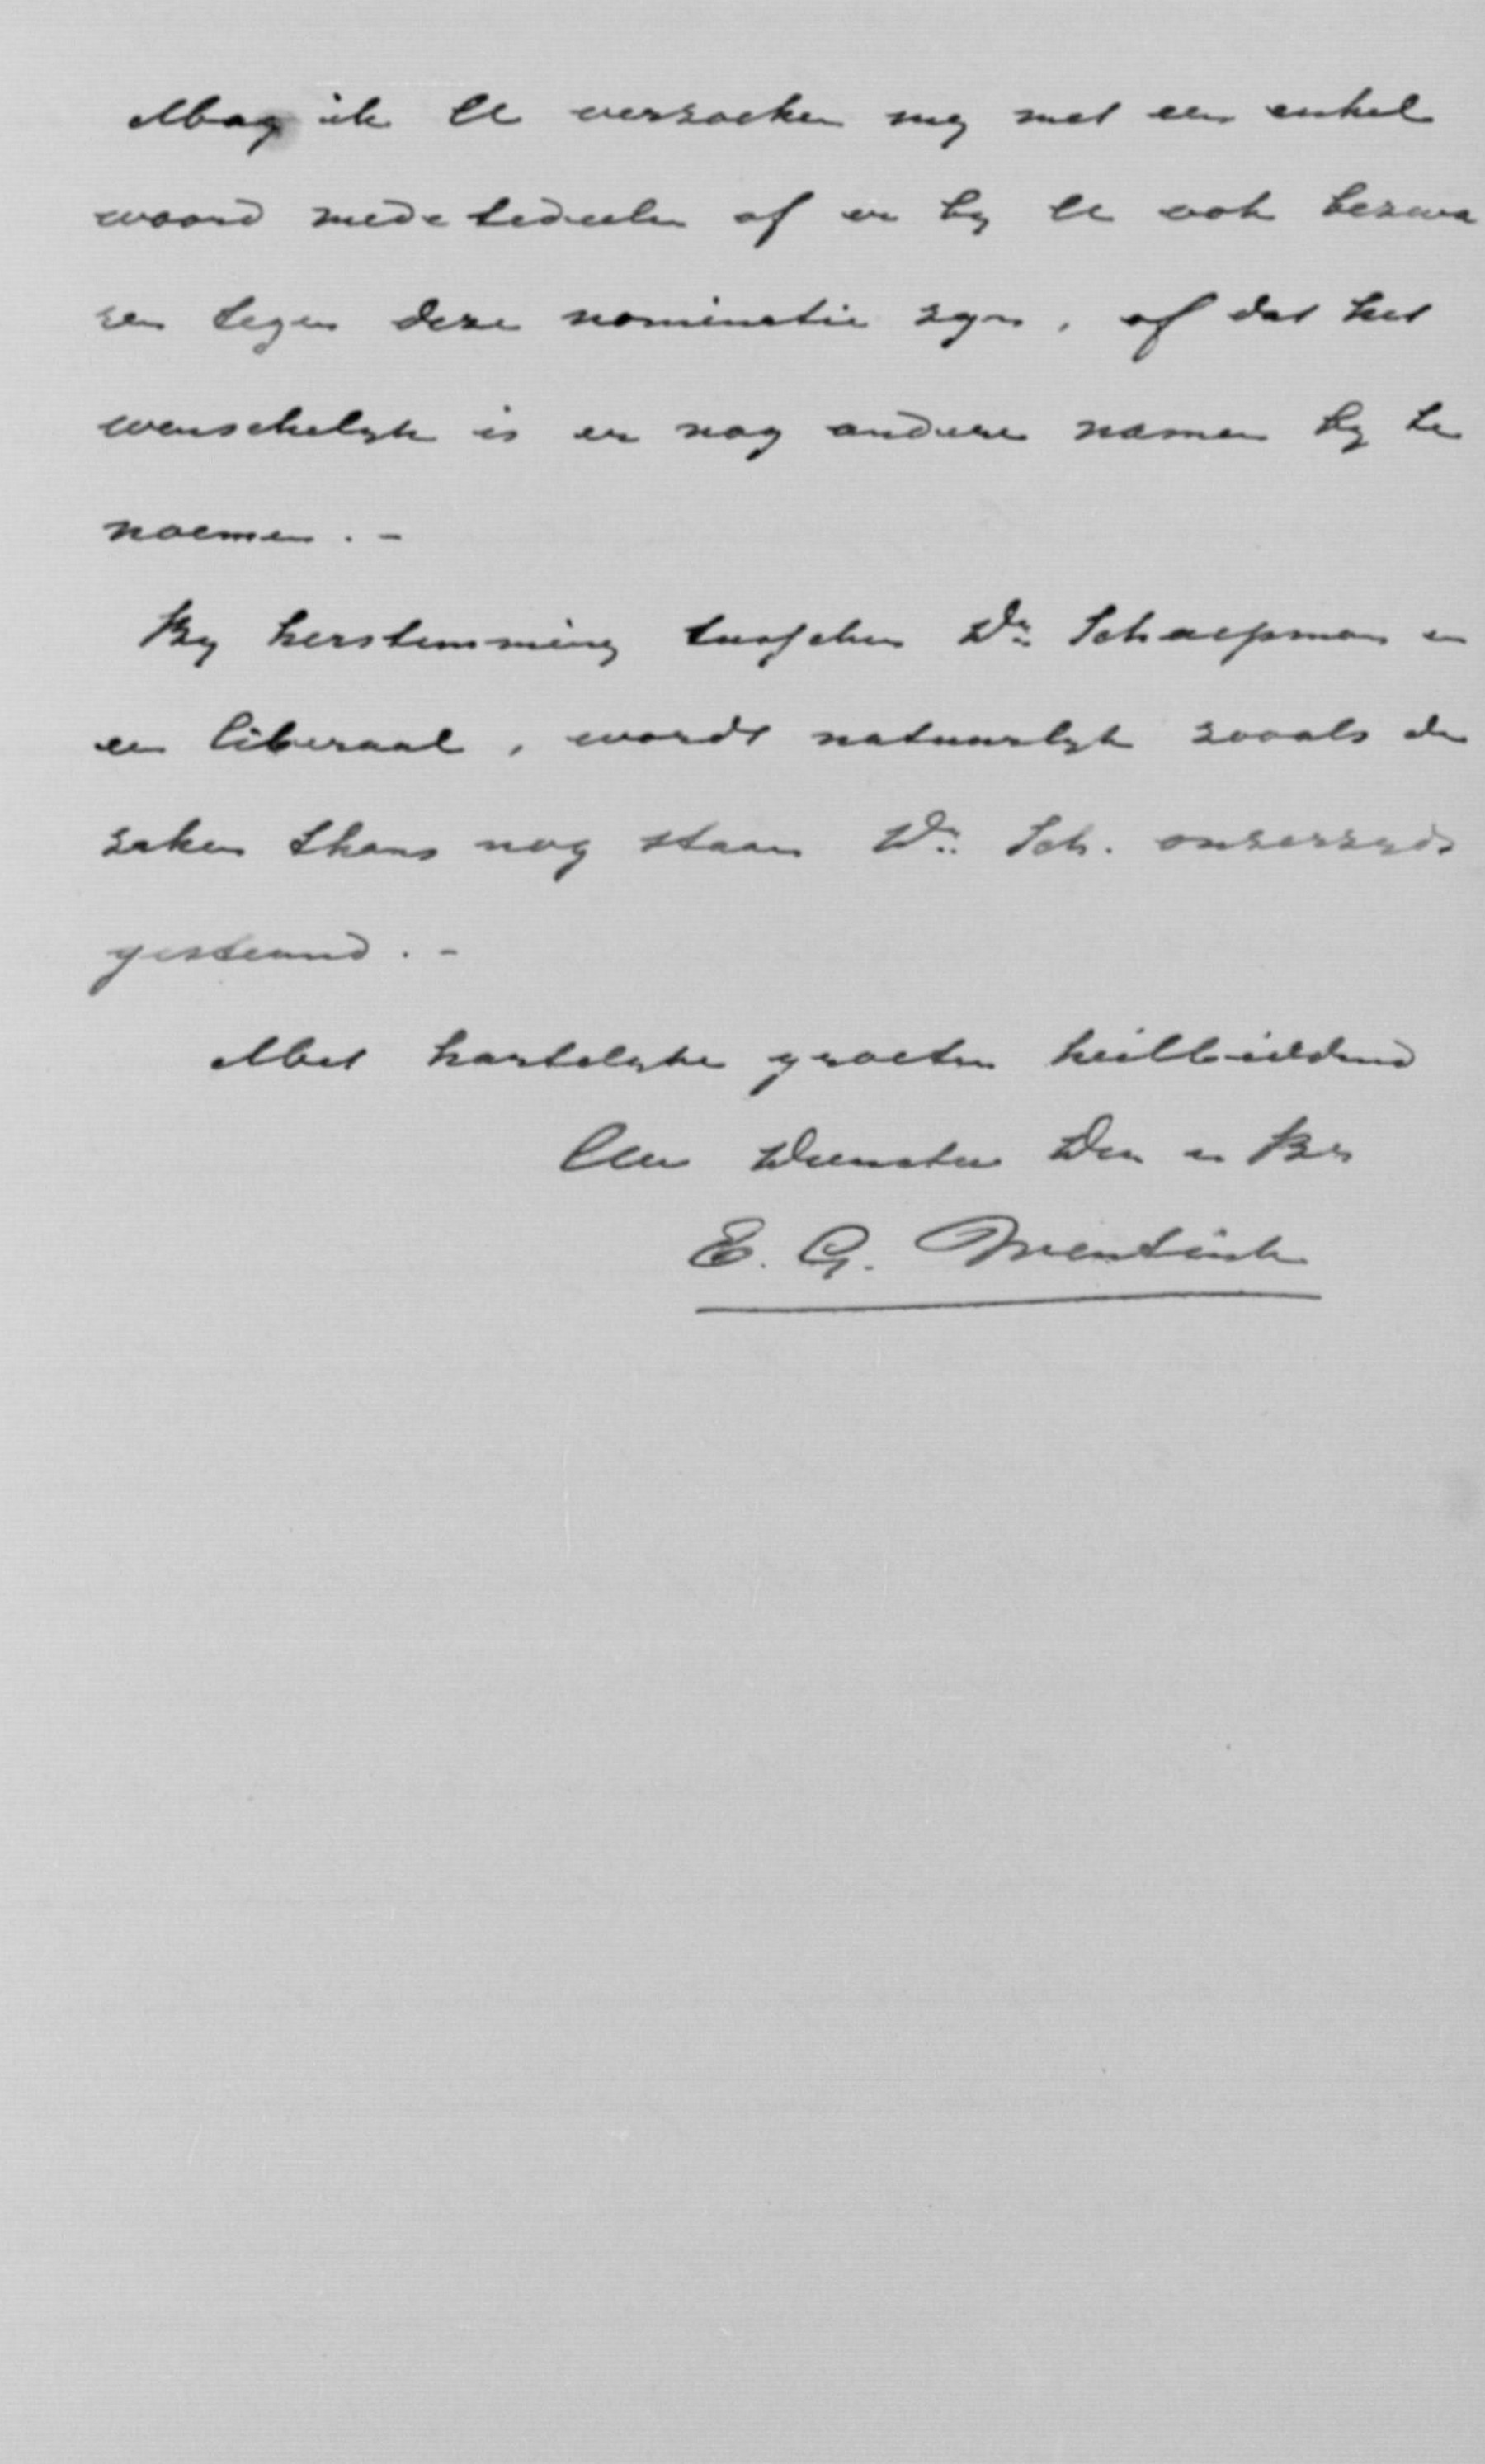 Mag ik U verzoeken my met een enkel
woord mede tedeelen of er by U ook bezwa
ren tegen deze nominatie zyn, of dat het
wenschelyk is er nog andere namen by te
noemen. -
By herstemming tusschen Dr. Schaepman en
een liberaal, wordt natuurlyk zooals de
zaken thans nog staan Dr. Sch. onzerzyds
gesteund. -
Met hartelyke groeten heilbiddend
Uw Dienstw Dr en Br
E. G. Wentink